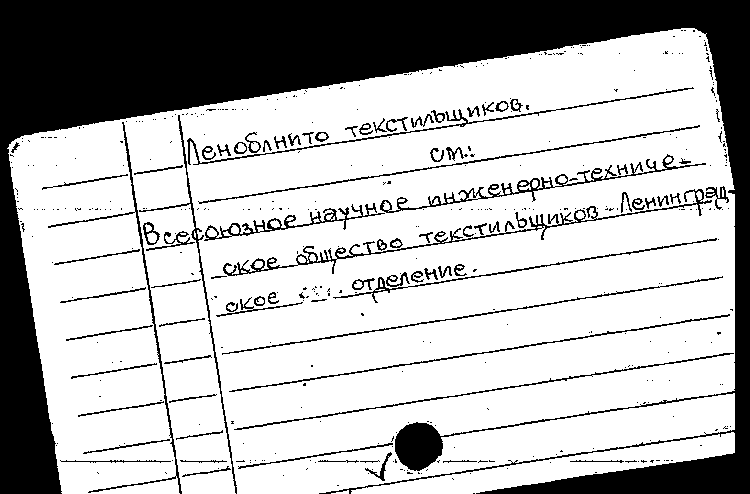 Леноблнито текстильщиков.
см.:
Всесоюзное научное инженерно-техниче-
ское общество текстильщиков. Ленинград-
ское отделение.